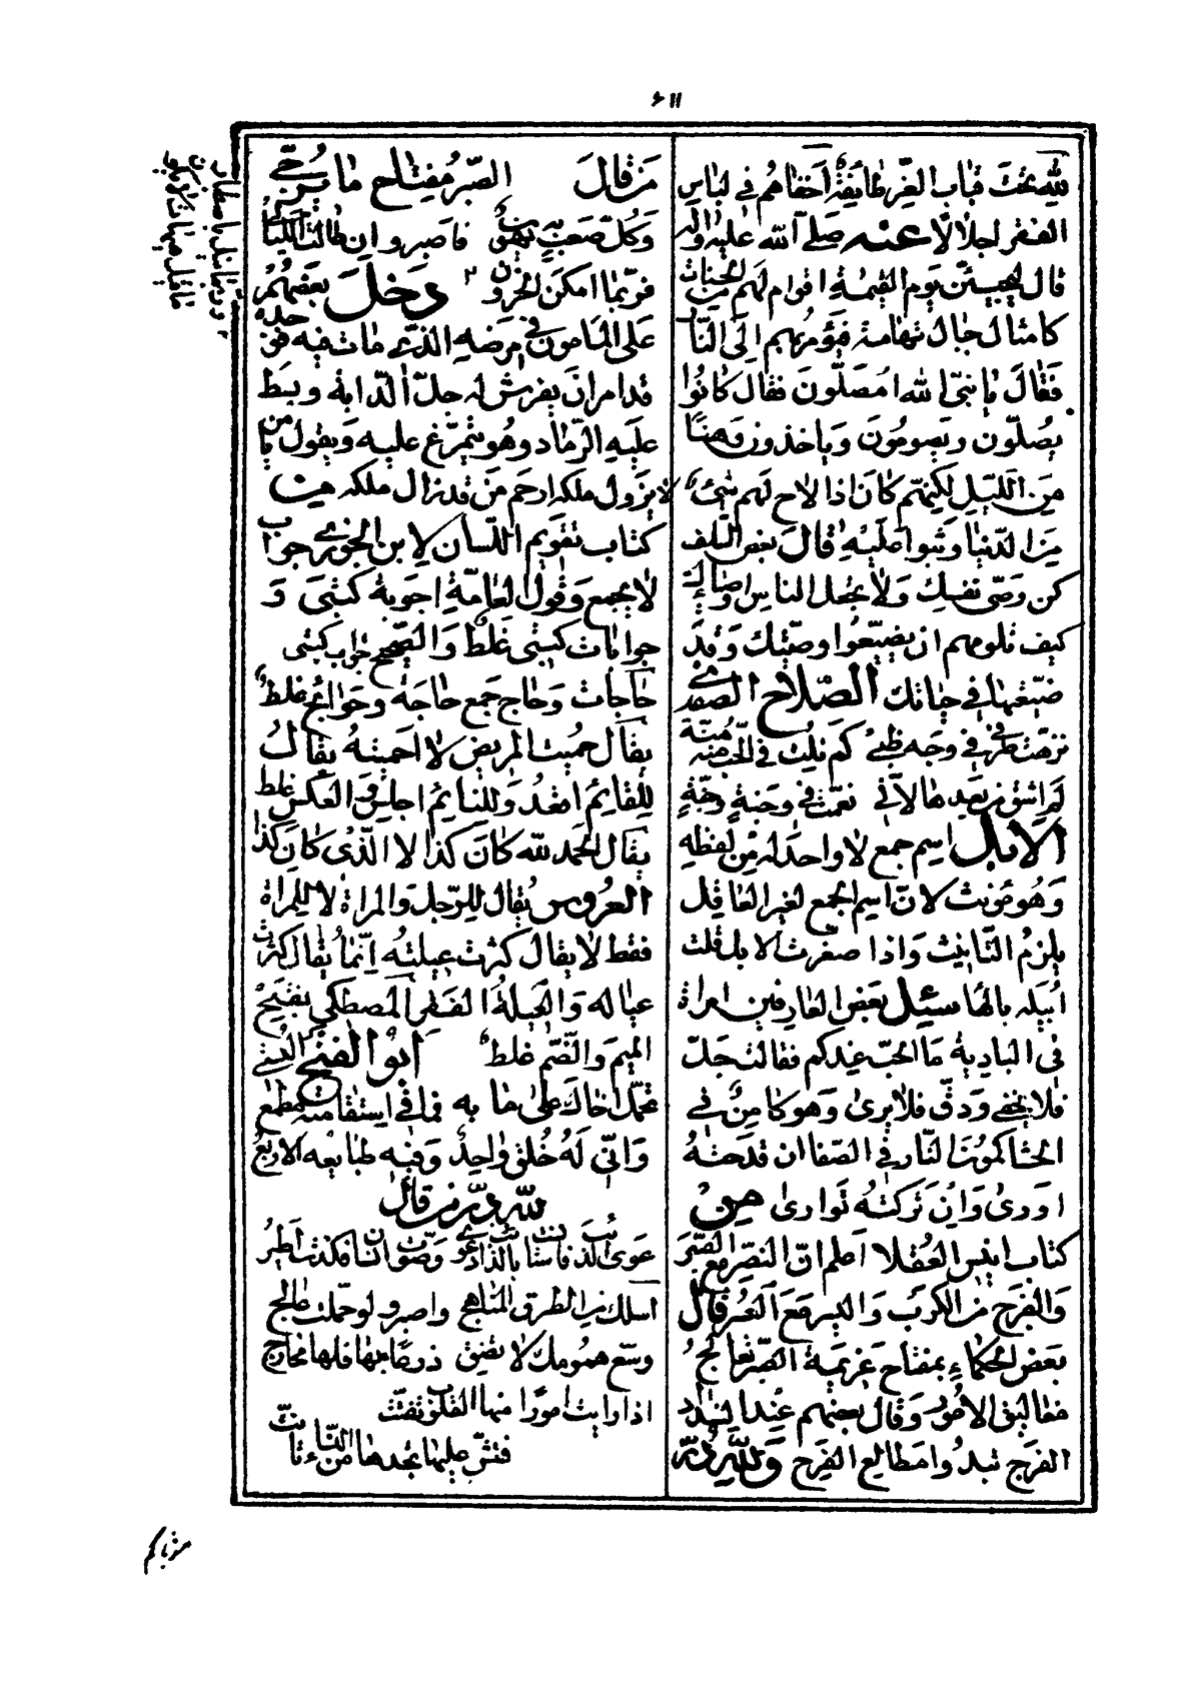 ٦١١
لله تحت قباب العز طائفة أخفاهم في لباس
الفقر إجلالا عنه صلى الله عليه وآله
قال ليجيئن يوم القيمة اقوام لهم من الحسنات
كامثال جبال تهامة فيؤمر بهم الى النار
فقال يا نبي الله امصلون فقال كانوا
يصلون ويصومون ويأخذون وهنا
من الليل لكنهم كان اذا لاح لهم شيء
من الدنيا وثبوا عليه قال بعض السلف
كن وصي نفسك ولا تجعل الناس اوصيائك
كيف تلومهم ان يضيعوا وصيتك وقد
ضيعتها في حياتك الصلاح الصفدي
نزهت طرفي في وجه ظبي كم نلت في الحب منه منة
لم اشق من بعدها لاني نعمت في وجنة وجنة
الابل اسم جمع لا واحد له من لفظه
وهو مونث لان اسم الجمع لغير العاقل
يلزم التانيث واذا صغرت الابل قلت
ابيله بالها سئل بعض العارفين امراة
في البادية ما الحب عندكم فقالت جل
فلا يخفى ودق فلا يرى وهو كامن في
الحشا كمون النار في الصفا ان قدحته
اورى وان تركته توارى من
كتاب انيس العقلا اعلم ان النصر مع الصبر
والفرج من الكرب واليسر مع العسر قال
بعض الحكماء بمفتاح عزيمة الصبر تعالج
مغاليق الامور وقال بعضهم عند انسداد
الفرج تبدوا مطالع الفرج ولله در
من قال الصبر مفتاح ما يرجى
وكل صعب به يهون فاصبر وان طالت الليالي
فربما امكن الحزون دخل بعضهم
على المامون في مرضه الذي مات فيه فوجده
قد امر ان يفرش له جل الدابة وبسط
عليه الرماد وهو يتمرغ عليه ويقول يا من
لا يزول ملكه ارحم من قد زال ملكه من
كتاب تقويم اللسان لابن الجوزي جواب
لا يجمع وقول العامة اجوبة كتبي و
جوابات كتبي غلط والصحيح جواب كتبي
حاجات وحاج جمع حاجة وحوائج غلط
يقال حميت المريض لا احميته يقال
للقائم اقعد وللنائم اجلس والعكس غلط
يقال الحمد لله كان كذا لا الذي كان كذا
العروس يقال للرجل والمراة لا للمراة
فقط لا يقال كثرت عيلته انما يقال كثرت
عياله والعيلة الفقر المصطكي بفتح
الميم والضم غلط ابو الفتح البستي
تحمل اخاك على ما به فما في استقامته مطمع
وانى له خلق واحد وفيه طبائعه الاربع
لله در من قال
عوى الذئب فاستانست بالذئب اذ عوى وصوت انسان فكدت اطير
اسلك من الطرق المناهج واصبر ولو حملت عالج
وسع همومك لا تضق ذرعا بها فلها مخارج
اذا رايت امورا منها القلوب تفتت
فتش عليها تجدها من النساء تاتت